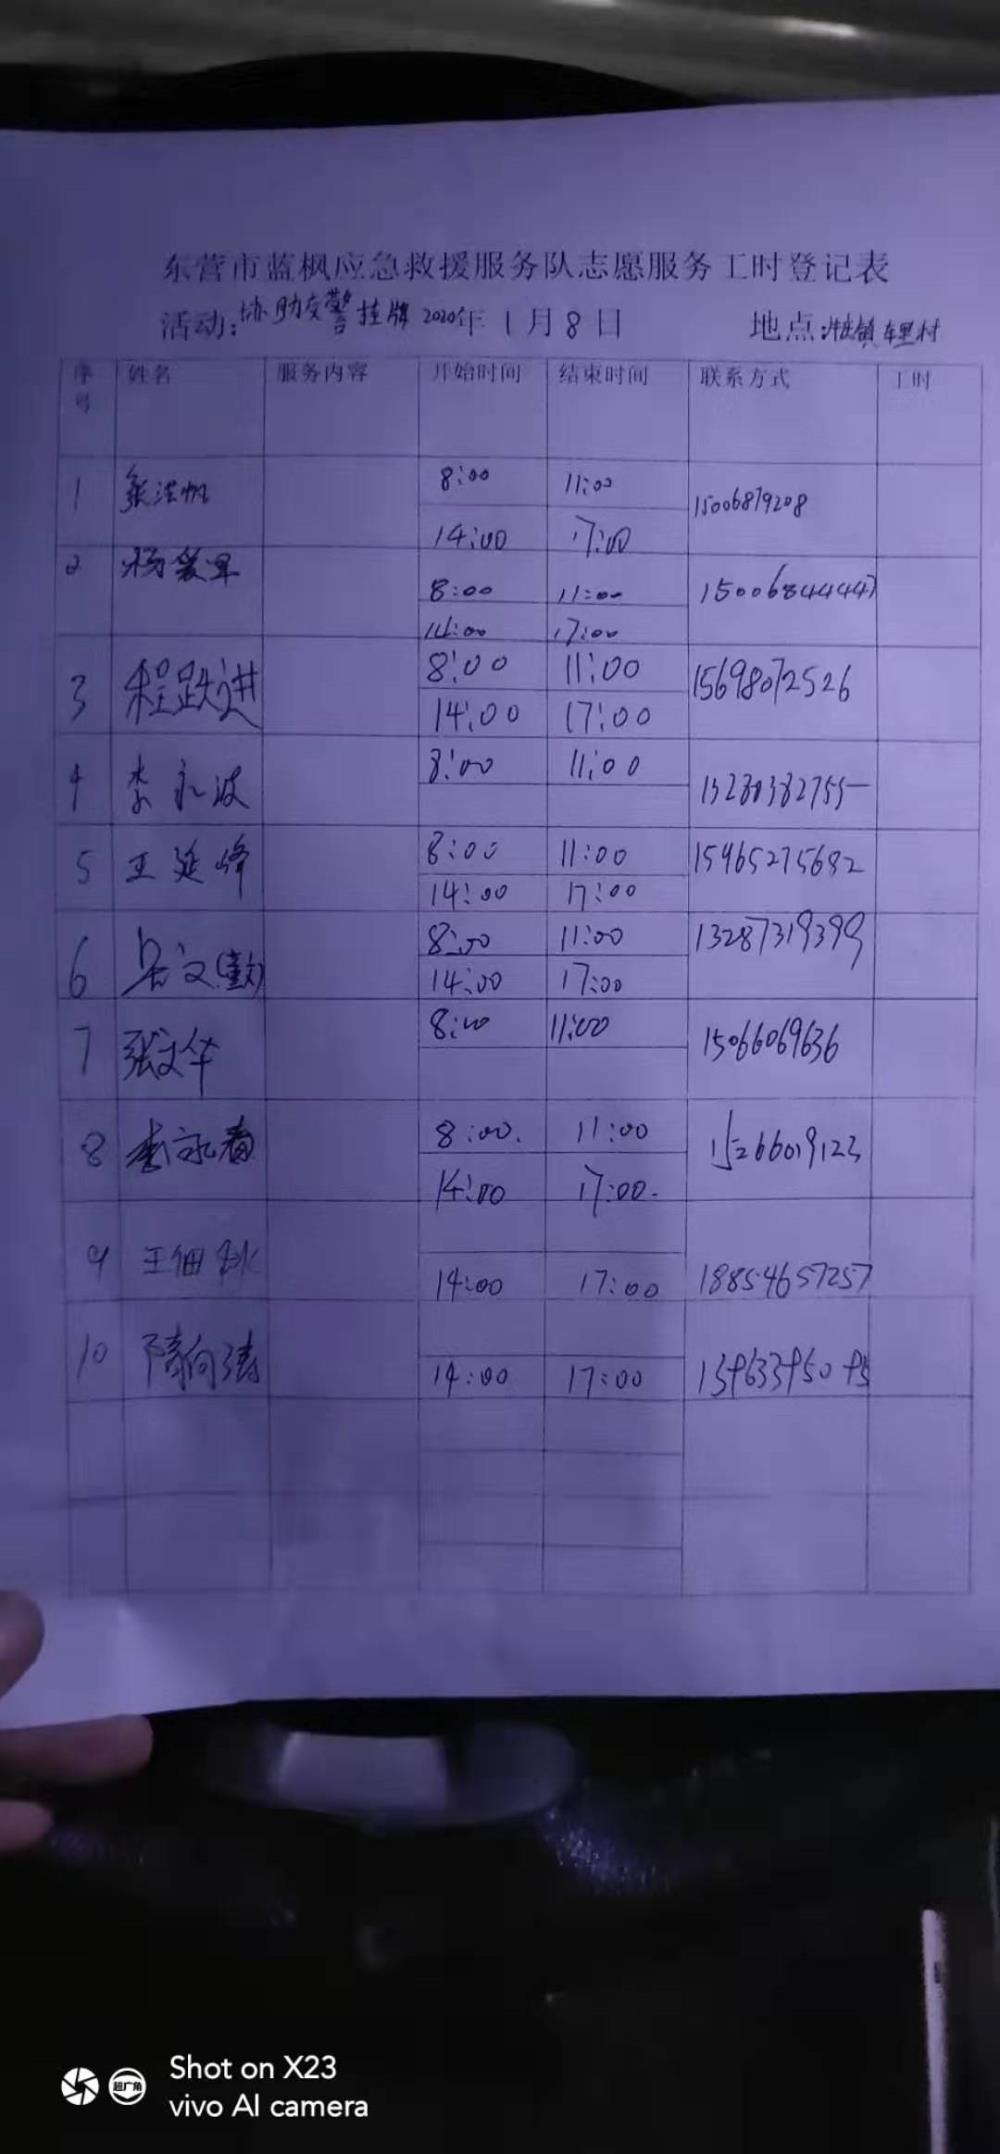 东营市蓝枫应急救援服务队志愿服务工时登记表
活动:协助交警挂牌 2020年 1月8日 地点:牛庄镇 村
序号 姓名 服务内容 开始时间 结束时间 联系方式 工时
1 张洪帆 8:00 11:00 15006879208
14:00 17:00
2 杨爱军 8:00 11:00 15006844447
14:00 17:00
3 程跃进 8:00 11:00 15698072526
14:00 17:00
4 李永波 8:00 11:00
5 王延峰 8:00 11:00 15965275682
14:00 17:00
6 8:00 11:00 13287319399
14:00 17:00
7 张文华 8:00 11:00 15066069636
8 李永春 8:00. 11:00 15266019123
14:00 17:00.
9 王佃 14:00 17:00 18854657257
10 隋向涛 14:00 17:00
Shot on X23
vivo AI camera
超广角